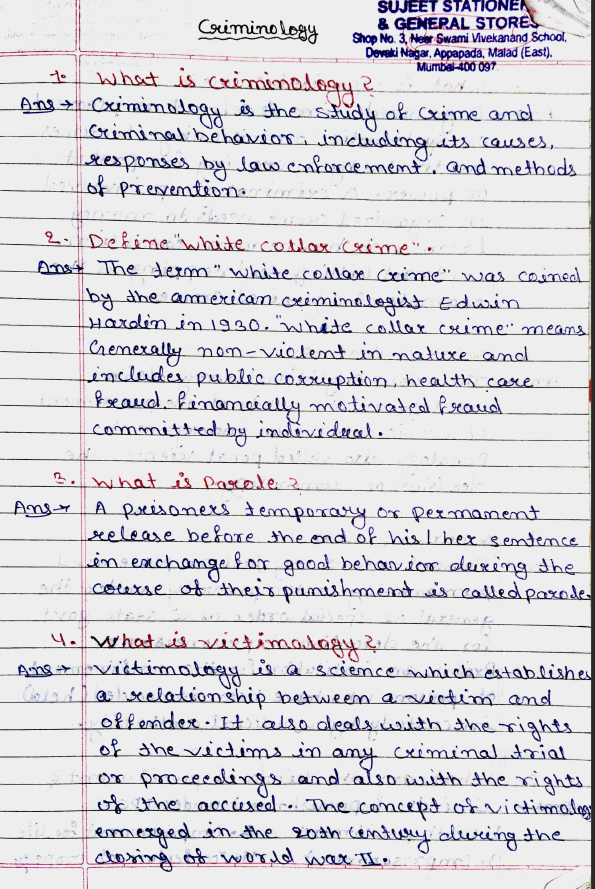 SUJEET STATIONER
& GENERAL STORES
Shop No. 3, Near Swami Vivekanand School,
Devaki Nagar, Appapada, Malad (East),
Mumbai-400 097
Criminology
1. What is criminology?
Ans → Criminology is the study of crime and
criminal behavior, including its causes,
responses by law enforcement, and methods
of prevention.
2. Define "white collar crime".
Ans → The term "white collar crime" was coined
by the american criminologist Edwin
Hardin in 1930. "White collar crime" means
Generally non-violent in nature and
includes public corruption, health care
fraud. financially motivated fraud
committed by individual.
3. What is Parole?
Ans → A prisoners temporary or permament
release before the end of his/her sentence
in exchange for good behavior during the
course of their punishment is called parole.
4. What is victimology?
Ans → Victimology is a science which establishes
a relationship between a victim and
offender. It also deals with the rights
of the victims in any criminal trial
or proceedings and also with the rights
of the accused. The concept of victimology
emerged in the 20th century during the
closing of world war II.